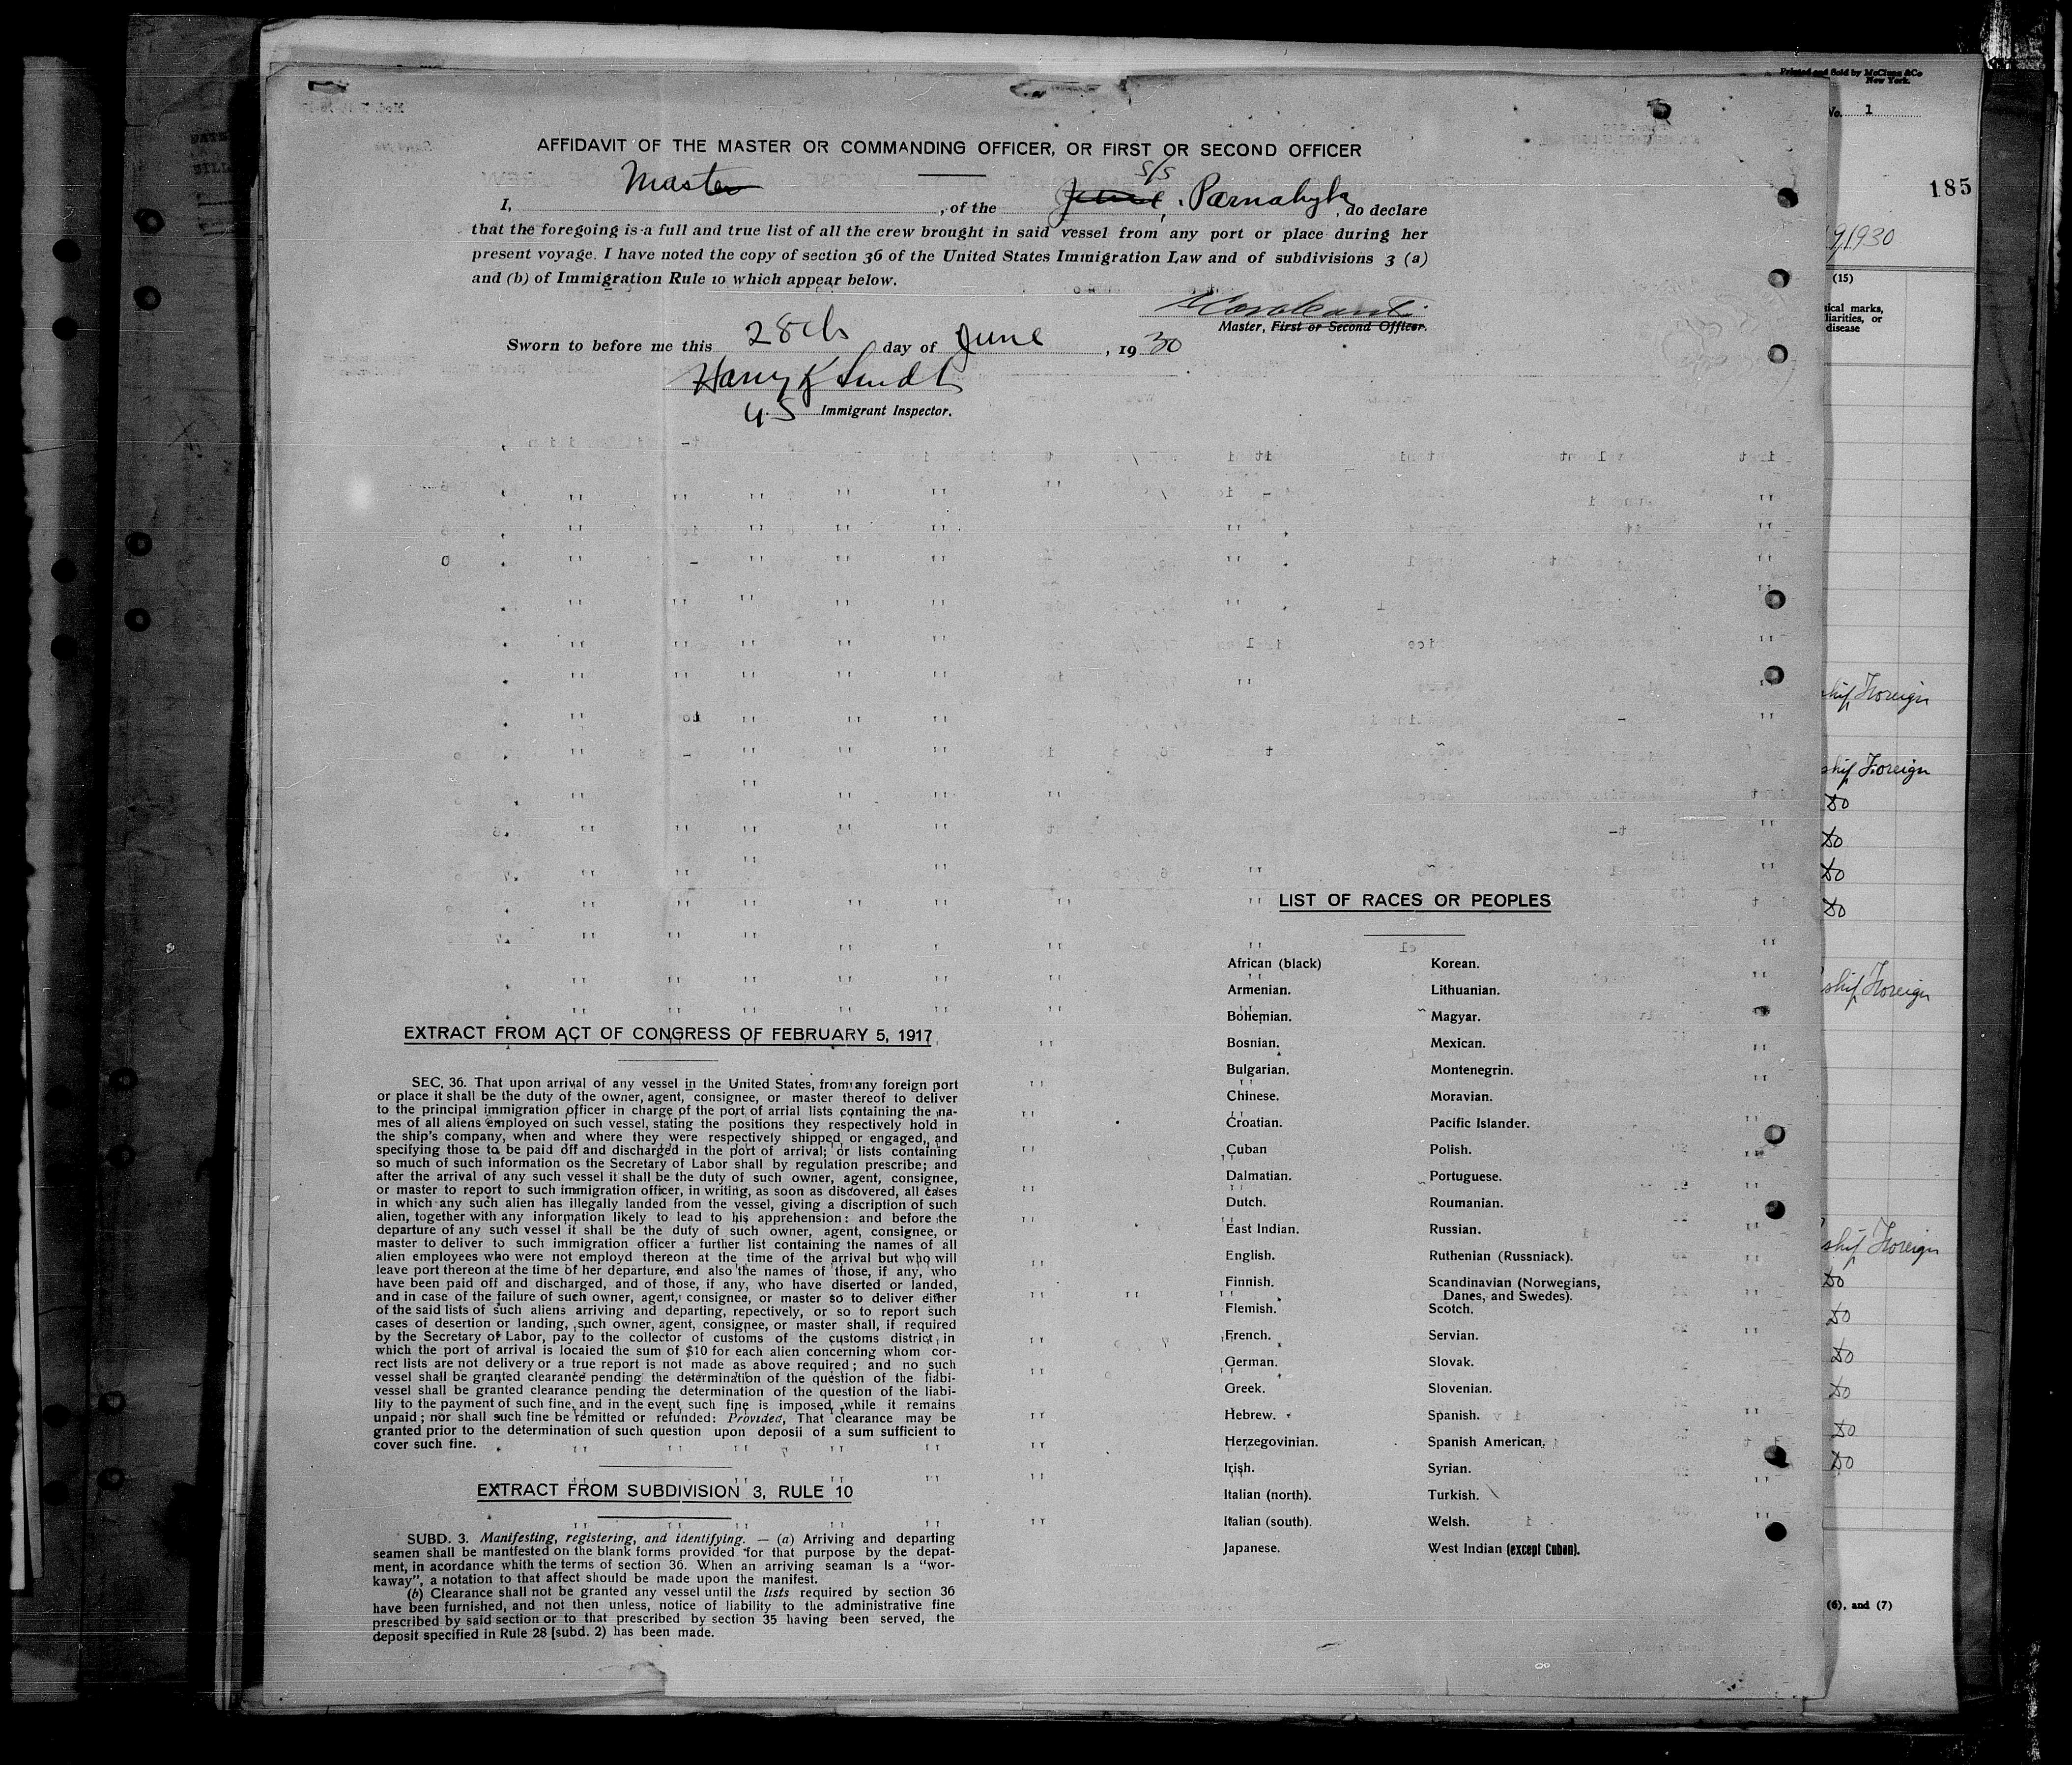 Printed and Sold by McClunn & Co
New York.
No. 1
185
9/1930
(15)
marks,
or
disease
AFFIDAVIT OF THE MASTER OR COMMANDING OFFICER, OR FIRST OR SECOND OFFICER
I, Master, of the S/S Parnahyba, do declare
that the foregoing is a full and true list of all the crew brought in said vessel from any port or place during her
present voyage. I have noted the copy of section 36 of the United States Immigration Law and of subdivisions 3 (a)
and (b) of Immigration Rule 10 which appear below.
Master, First or Second Officer.
Sworn to before me this 28th day of June, 1930
Harry K
U.S. Immigrant Inspector.
Foreign
ship Foreign
do
do
do
do
ship Foreign
ship Foreign
do
do
do
do
do
do
(6), and (7)
EXTRACT FROM ACT OF CONGRESS OF FEBRUARY 5, 1917
SEC. 36. That upon arrival of any vessel in the United States, from any foreign port
or place it shall be the duty of the owner, agent, consignee, or master thereof to deliver
to the principal immigration officer in charge of the port of arrial lists containing the na-
mes of all aliens employed on such vessel, stating the positions they respectively hold in
the ship's company, when and where they were respectively shipped or engaged, and
specifying those to be paid off and discharged in the port of arrival; or lists containing
so much of such information os the Secretary of Labor shall by regulation prescribe; and
after the arrival of any such vessel it shall be the duty of such owner, agent, consignee,
or master to report to such immigration officer, in writing, as soon as discovered, all cases
in which any such alien has illegally landed from the vessel, giving a discription of such
alien, together with any information likely to lead to his apprehension: and before the
departure of any such vessel it shall be the duty of such owner, agent, consignee, or
master to deliver to such immigration officer a further list containing the names of all
alien employees who were not employd thereon at the time of the arrival but who will
leave port thereon at the time of her departure, and also the names of those, if any, who
have been paid off and discharged, and of those, if any, who have diserted or landed,
and in case of the failure of such owner, agent, consignee, or master so to deliver either
of the said lists of such aliens arriving and departing, repectively, or so to report such
cases of desertion or landing, such owner, agent, consignee, or master shall, if required
by the Secretary of Labor, pay to the collector of customs of the customs district in
which the port of arrival is locaied the sum of $10 for each alien concerning whom cor-
rect lists are not delivery or a true report is not made as above required; and no such
vessel shall be granted clearance pending the determination of the question of the liabi-
vessel shall be granted clearance pending the determination of the question of the liabi-
lity to the payment of such fine, and in the event such fine is imposed, while it remains
unpaid; nor shall such fine be remitted or refunded: Provided, That clearance may be
granted prior to the determination of such question upon deposii of a sum sufficient to
cover such fine.
EXTRACT FROM SUBDIVISION 3, RULE 10
SUBD. 3. Manifesting, registering, and identifying. — (a) Arriving and departing
seamen shall be mantfested on the blank forms provided for that purpose by the depat-
ment, in acordance whith the terms of section 36. When an arriving seaman Is a "wor-
kaway", a notation to that affect should be made upon the manifest.
(b) Clearance shall not be granted any vessel until the lists required by section 36
have been furnished, and not then unless, notice of liability to the administrative fine
prescribed by said section or to that prescribed by section 35 having been served, the
deposit specified in Rule 28 (subd. 2) has been made.
LIST OF RACES OR PEOPLES
African (black)
Armenian.
Bohemian.
Bosnian.
Bulgarian.
Chinese.
Croatian.
Cuban
Dalmatian.
Dutch.
East Indian.
English.
Finnish.
Flemish.
French.
German.
Greek.
Hebrew.
Herzegovinian.
Irish.
Italian (north).
Italian (south).
Japanese.
Korean.
Lithuanian.
Magyar.
Mexican.
Montenegrin.
Moravian.
Pacific Islander.
Polish.
Portuguese.
Roumanian.
Russian.
Ruthenian (Russniack).
Scandinavian (Norwegians,
Danes, and Swedes).
Scotch.
Servian.
Slovak.
Slovenian.
Spanish.
Spanish American.
Syrian.
Turkish.
Welsh.
West Indian (except Cuban).